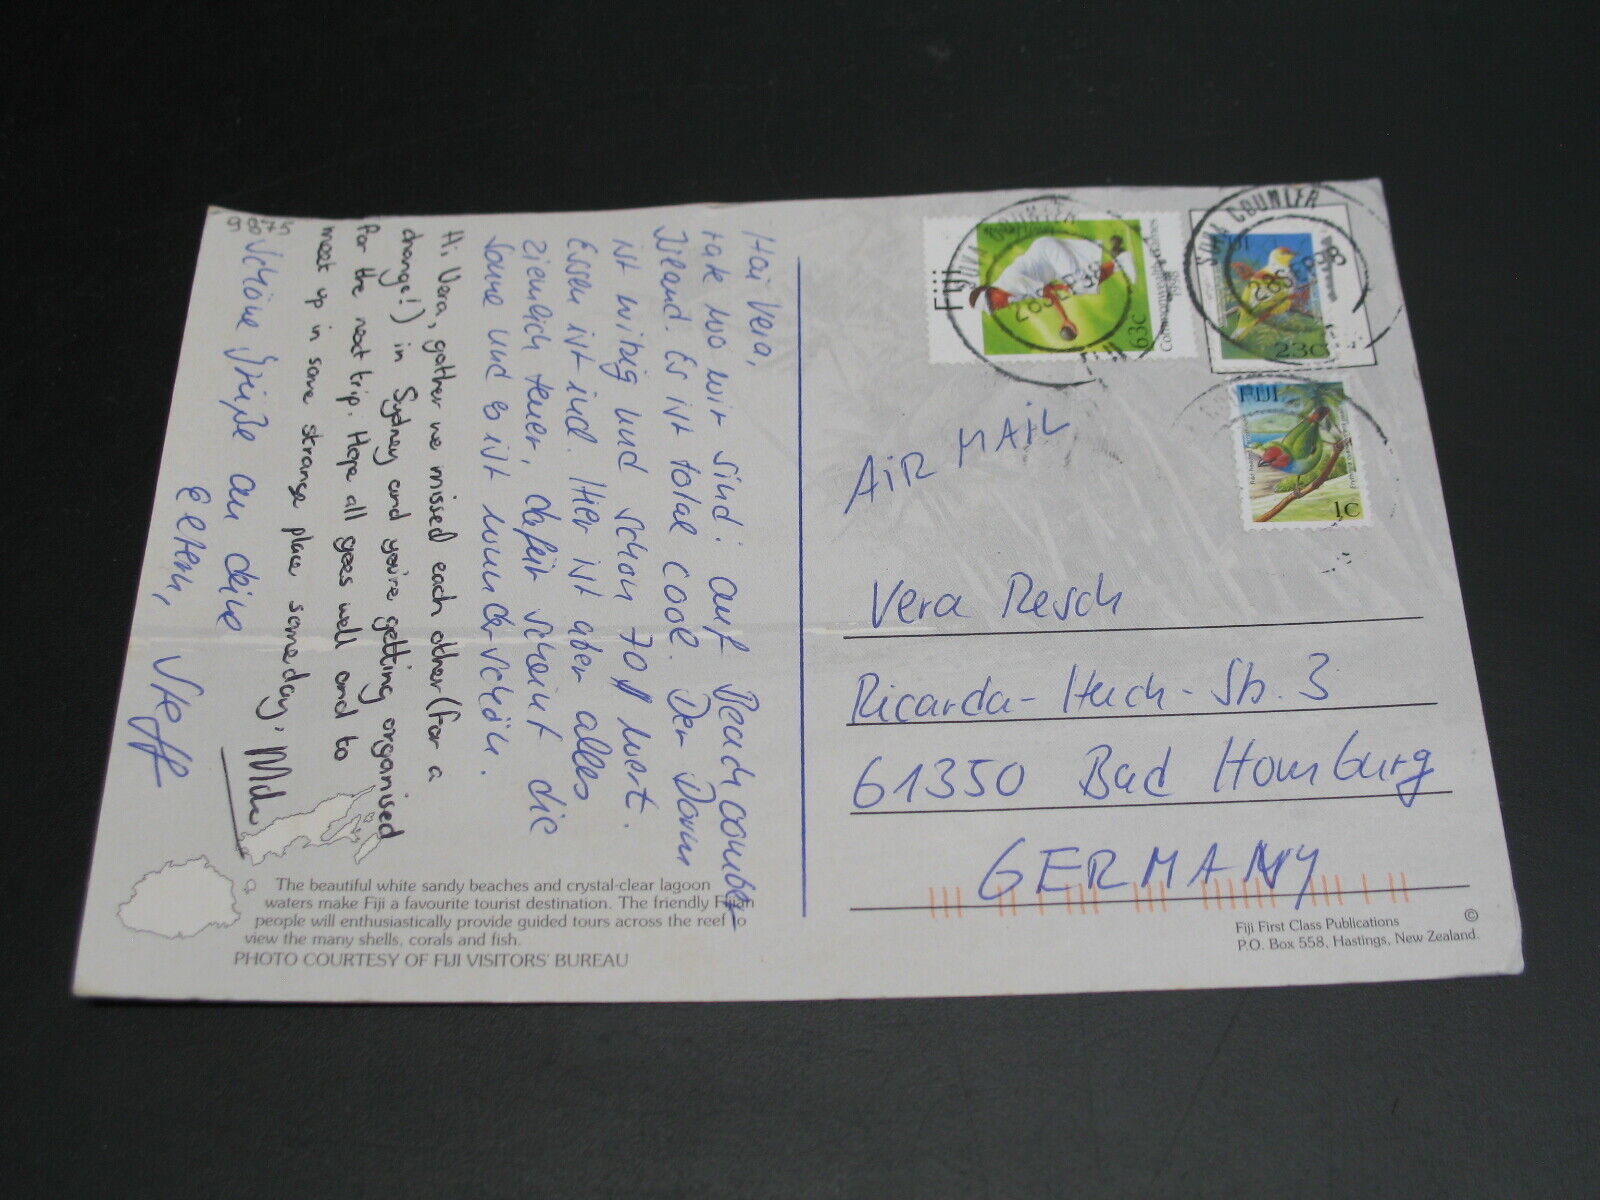 9875
Hai Vera,
rate wo wir sind: auf Beachcomber
Island. Es ist total cool. Der Dorm
ist witzig und schon 70 $ wert.
Essen ist incl. Hier ist aber alles
ziemlich teuer, dafür scheint die
Sonne und es ist wunderschön.
Hi Vera, gather we missed each other (for a
change!) in Sydney and you're getting organised
for the next trip. Hope all goes well and to
meet up in some strange place someday,
Schöne Grüße an deine
Eltern, Steff
The beautiful white sandy beaches and crystal-clear lagoon
waters make Fiji a favourite tourist destination. The friendly Fijian
people will enthusiastically provide guided tours across the reef to
view the many shells, corals and fish.
PHOTO COURTESY OF FIJI VISITORS' BUREAU
Fiji
63c
Commonwealth Games
1998
SUVA COUNTER
28 SEP 98
FIJI
SUVA COUNTER
28 SEP 98
FIJI
23c
FIJI
1c
AIR MAIL
Vera Resch
Ricarda-Huch-Str. 3
61350 Bad Homburg
GERMANY
Fiji First Class Publications ©
P.O. Box 558, Hastings, New Zealand.